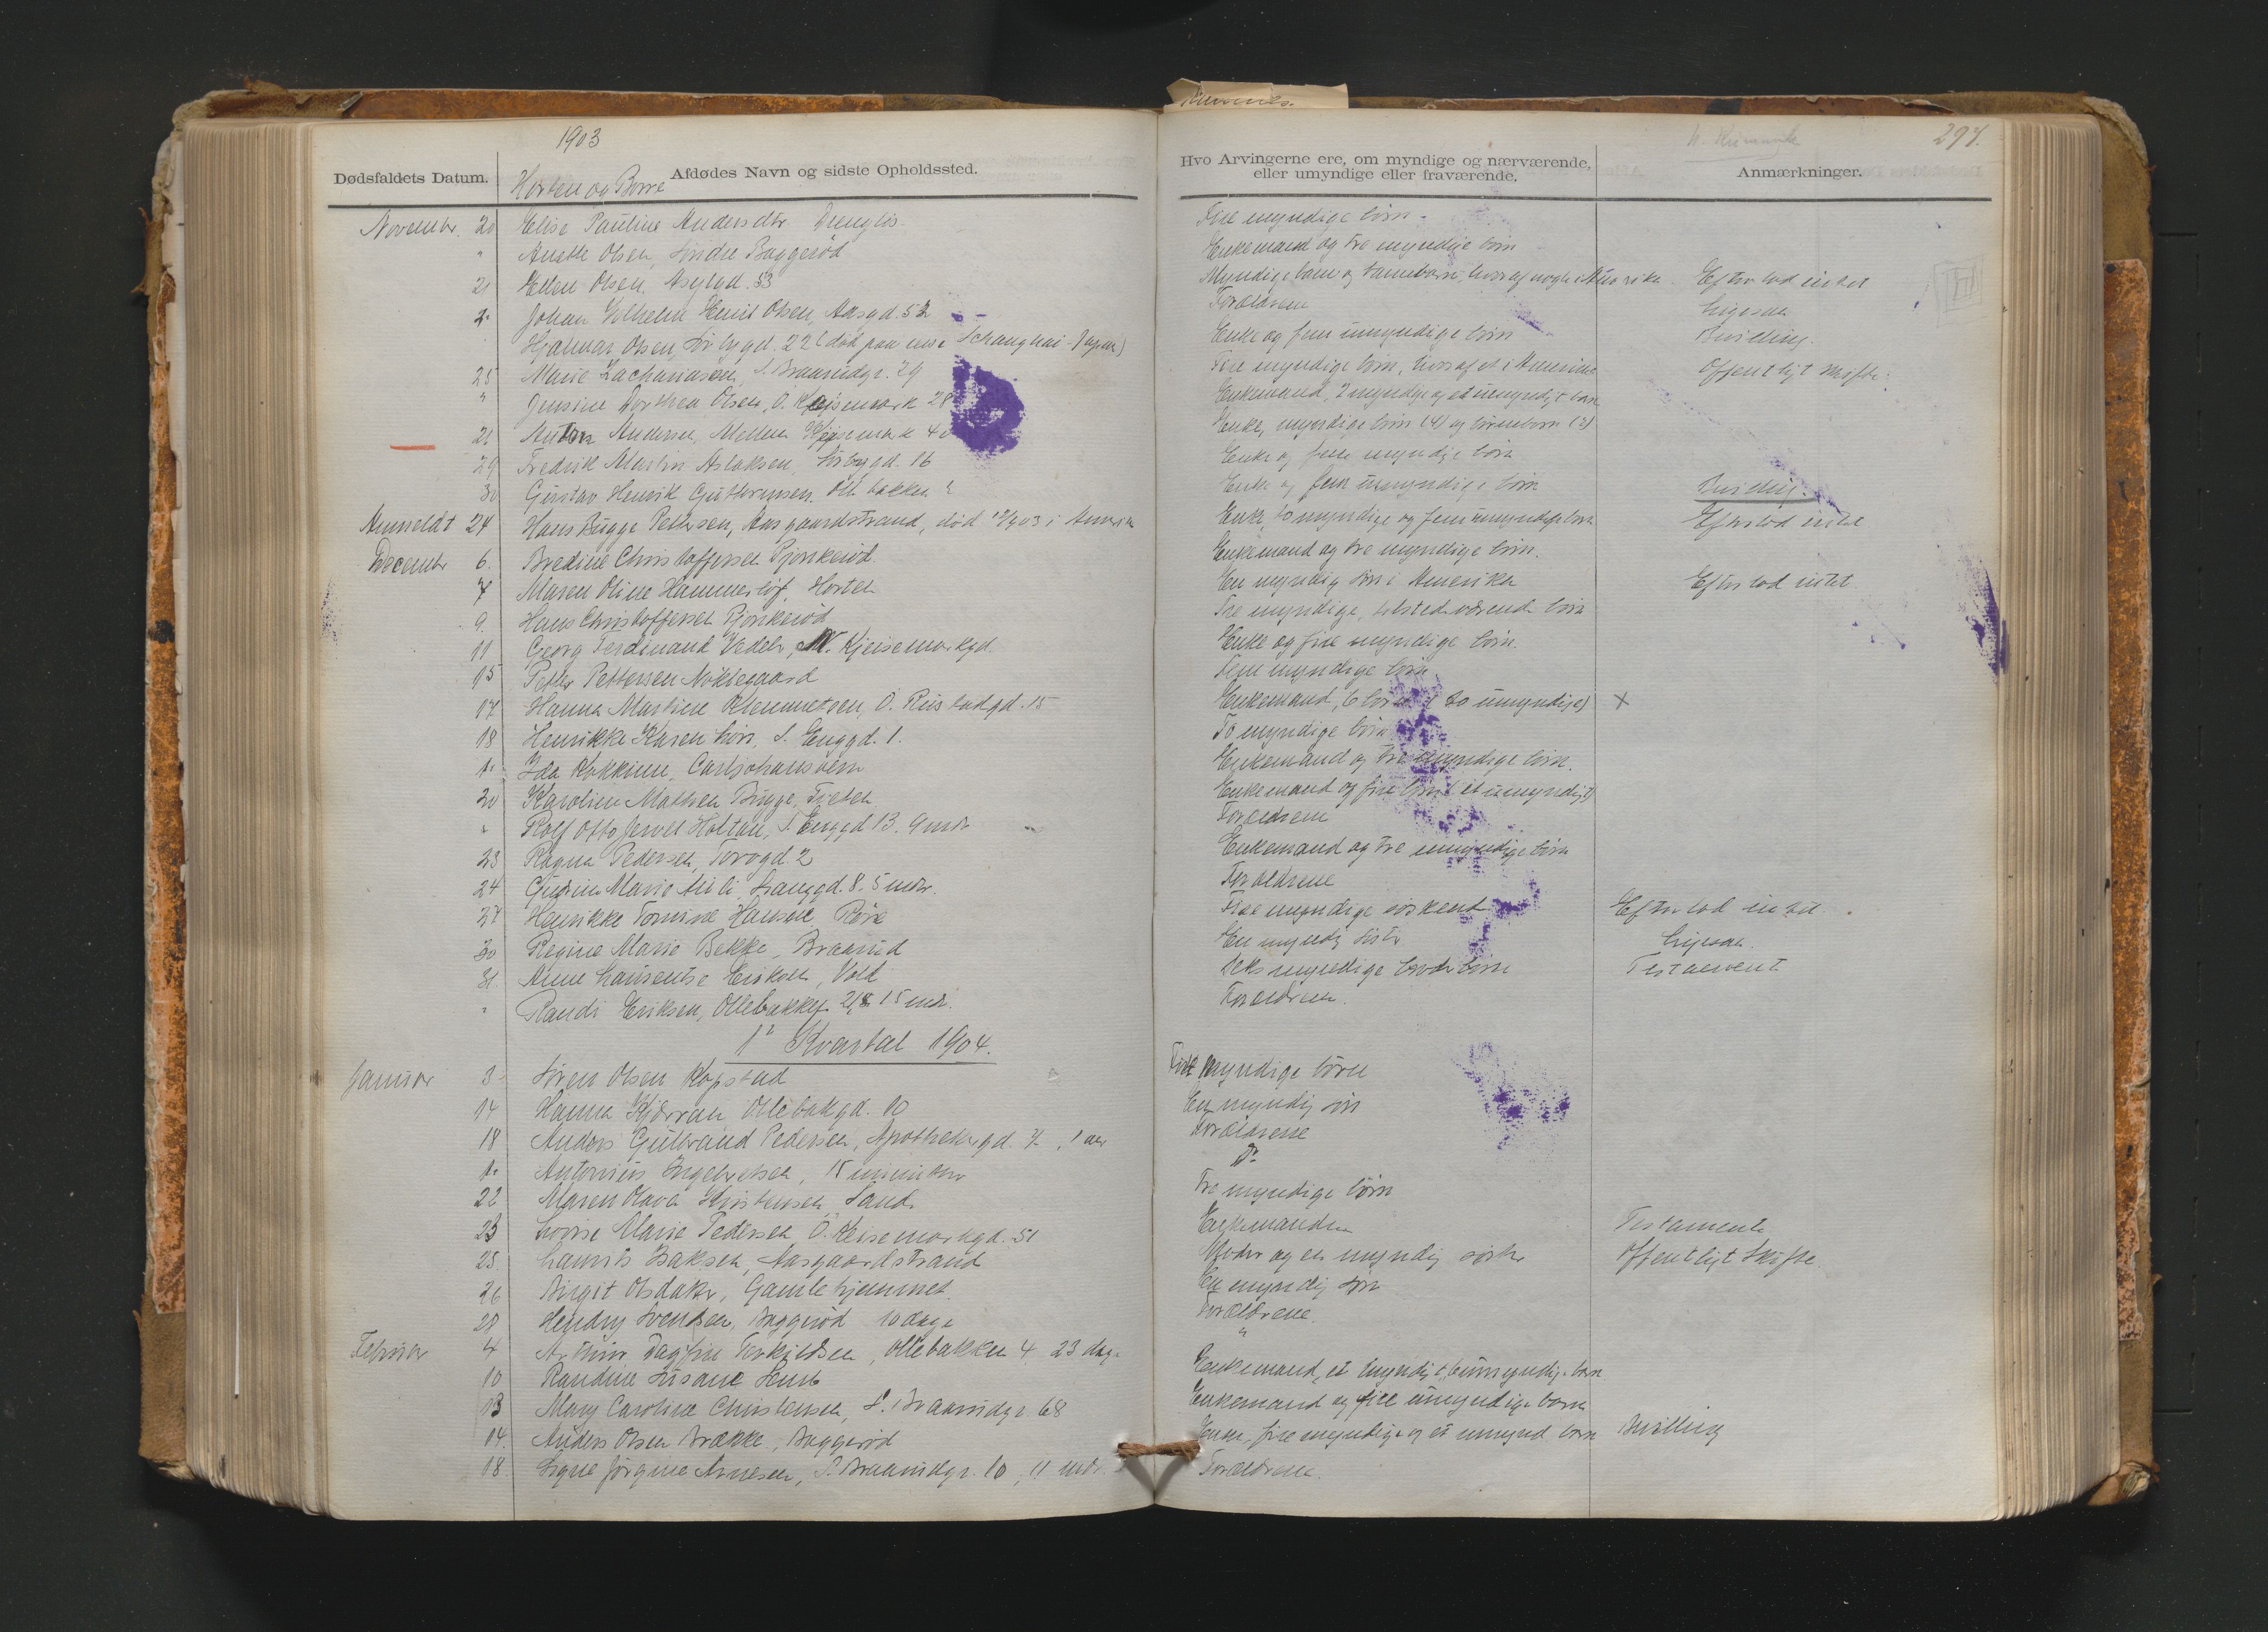 1903
297.
Dødsfaldets Datum.
Horten og Borre
Afdødes Navn og sidste Opholdssted.
Hvo Arvingerne ere, om myndige og nærværende,
eller umyndige eller fraværende.
Anmærkninger.
November 20 Elise Pauline Andersdtr Fire myndige børn
" Anette Olsen, Søndre Baggerød Enkemand og tre myndige børn
21 Ellen Olsen, Asylgd. 33 Myndige børn og hvoraf nogle i Amerika Efterlod intet
Johan Vilhelm Emil Olsen, Aasgd. 52 Forældrene Ligesaa
Hjalmar Olsen, Sørbygd. 22 (død paa reise Schanghai - Japan) Enke og fem umyndige børn Bevilling.
25 Marie Zachariasen, S. Braarudgr. 29 Fire myndige børn, hvoraf et i Amerika Offentligt skifte
" Jensine Dorthea Olsen, Ø. Keisemark 28 Enkemand, 2 myndige og et umyndigt barn
Anton Andersen, Mellem Keisemark 40 Enke, myndige børn (4) og børnebørn (3)
29 Fredrik Martin Aslaksen, Sørbygd. 16 Enke og fem myndige børn
30 Gustav Henrik Guttormsen, Ollebakken 2 Enke og fem umyndige børn Bevilling.
Anmeldt 24 Hans Bugge Pettersen, Aasgaardstrand, død i Amerika Enke, to myndige og fem umyndige børn Efterlod intet
December 6. Bredine Christoffersen Bjønkerød Enkemand og tre myndige børn.
7 Maren Oline Hammerløf, Horten En myndig søn i Amerika Efterlod intet
9. Hans Christoffersen Bjønkerød Tre myndige, tilstedeværende børn
11 Georg Ferdinand Vedeler, N. Kjeisemarkgd. Enke og fire myndige børn.
15 Petter Pettersen Nøklegaard Fem myndige børn
17 Hanna Martine Klemmetsen, Ø. Rustadgd. 15 Enkemand, 6 børn (to umyndige) X
18 Henrikke Karen Lørs, S. Enggd. 1. To myndige børn
Ida Kokkinn, Carljohansværn Enkemand og tre umyndige børn.
20 Karoline Mathea Bugge, Fjeten Enkemand og fire børn (et umyndigt)
" Rolf Otto Jervel Holtan, S. Enggd 13. 9 mdr Forældrene
23 Ragna Pedersen, Torvgd. 2 Enkemand og tre umyndige børn
24 Gudrun Marie Langgd. 8. 5 mdr. Forældrene
27 Henrikke Tomine Hansen Røre Fire myndige søskende Efterlod intet.
30 Regine Marie Bekke, Braarud En myndig søster Ligesaa.
31. Anne Laurentse Eriksen, Vold Seks myndige broderbørn Testament
" Randi Eriksen, Ollebakken 21, 15 mdr. Forældrene.
1' Kvartal 1904.
Januar 3 Søren Olsen Kopstad Fire myndige børn
14 Hanna Kjærran Ollebakgd. 10 En myndig søn
18 Anders Gulbrand Pedersen, Apothekergd. 7, 1 aar Forældrene
Antonius Ingebretsen, 15 minutter Do
22 Maren Olava Kristensen, Sande Tre myndige børn
23 Lovise Marie Pedersen Ø. Keisemarkgd. 51 Enkemanden Testamente
25. Laurits Isaksen, Aasgaardstrand Moder og en myndig søster Offentligt Skifte
26 Birgit Olsdatter, Gamlehjemmet En myndig søn
28 Hendry Svendsen, Baggerød 10 dage Forældrene.
Februar 4 Arthur Dagfin Torkildsen, Ollebakken 4 23 dage "
10 Randine Susane Enkemand, et myndigt, umyndige børn
13 Mary Caroline Christensen, S. Braarudgr. 68 Enkemand og fire umyndige børn
14. Anders Olsen Brække, Baggerød Enke, fire myndige og et umynd. barn Bevilling
18. Signe Jørgine Arnesen, S. Braarudgr. 10, 11 mdr. Forældrene.